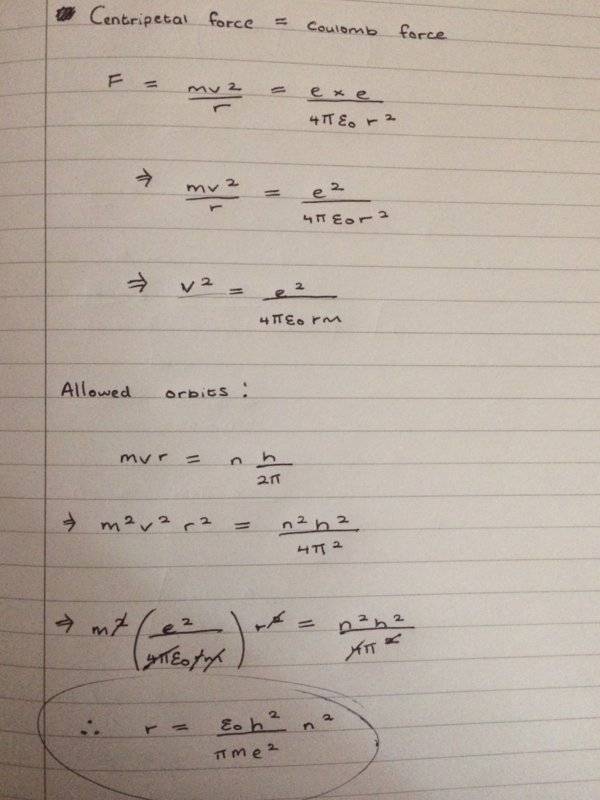 Centripetal force = coulomb force
F = mv²/r = e × e/4πε₀ r²
⇒ mv²/r = e²/4πε₀r²
⇒ v² = e²/4πε₀rm
Allowed orbits:
mvr = n h/2π
⇒ m²v²r² = n²h²/4π²
⇒ m²(e²/4πε₀rm) r² = n²h²/4π²
∴ r = ε₀h²/πme² n²